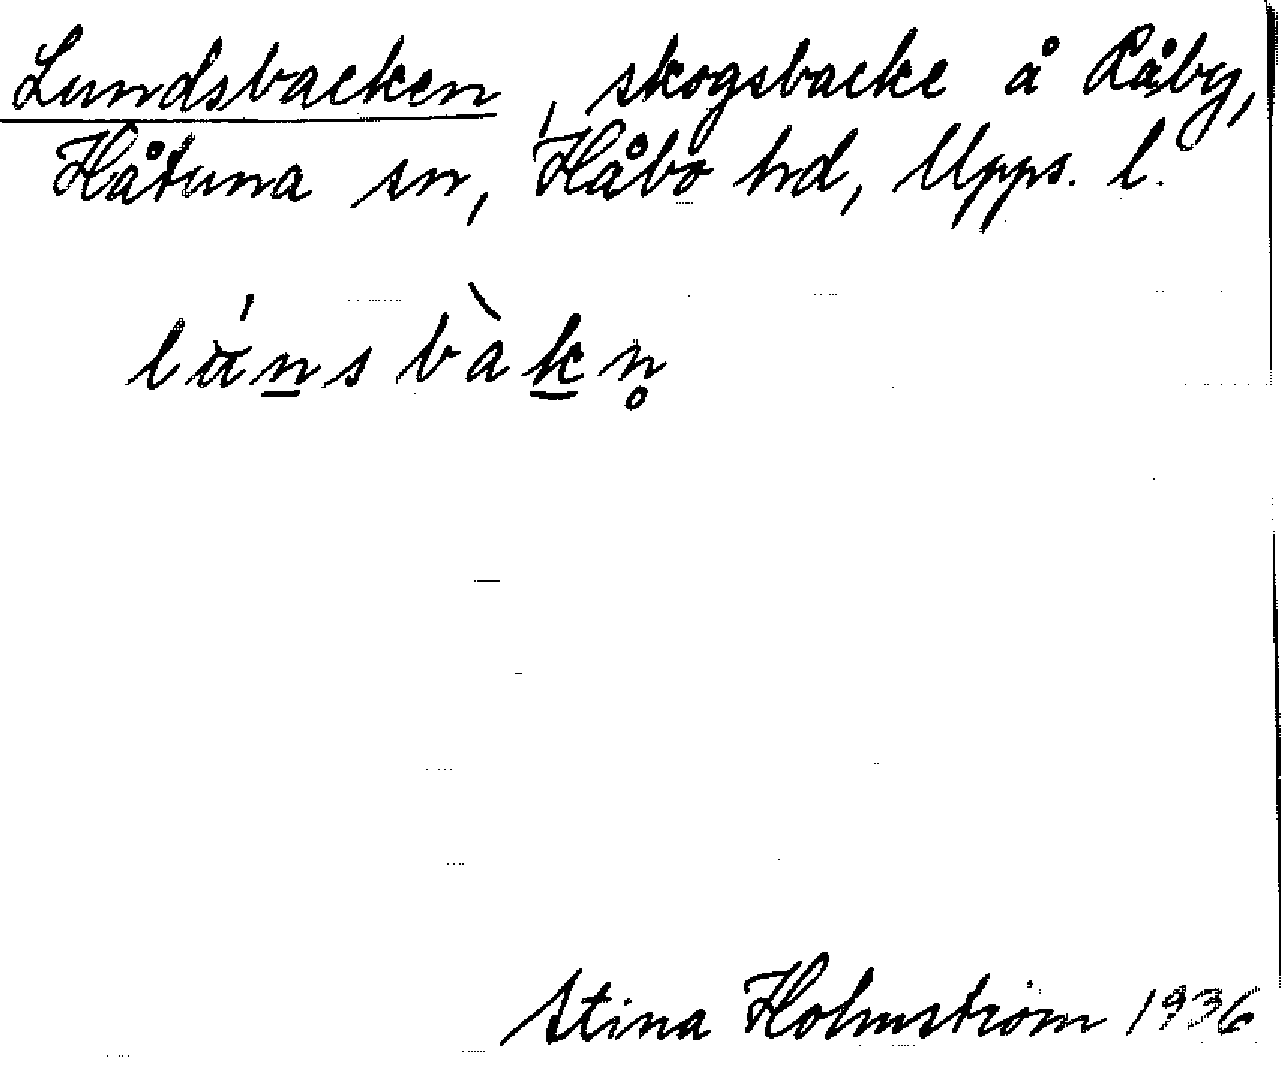 Lundsbacken, skogsbacke å Råby,
Håtuna sn, Håbo hd, Upps. l.
Stina Holmström 1936